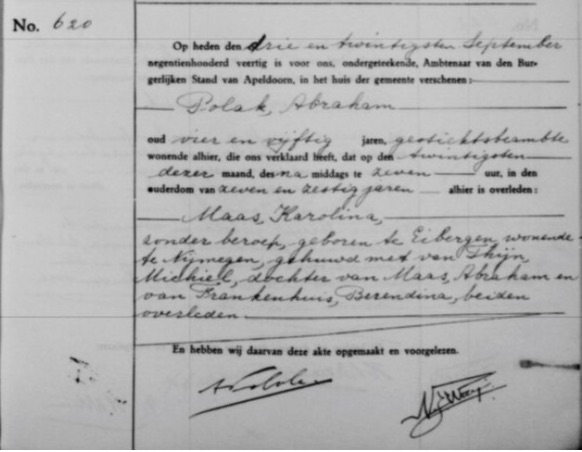 No. 620
Op heden den drie en twintigsten September
negentienhonderd veertig is voor ons, ondergeteekende, Ambtenaar van den Bur-
gerlijken Stand van Apeldoorn, in het huis der gemeente verschenen:
Polak, Abraham
oud vier en vijftig jaren, gestichtsbeambte
wonende alhier, die ons verklaard heeft, dat op den twintigsten
dezer maand, des na middags te zeven uur, in den
ouderdom van zeven en zestig jaren alhier is overleden:
Maas, Karolina,
zonder beroep, geboren te Eibergen, wonende
te Nijmegen, gehuwd met van Thijn,
Michiel, dochter van Maas, Abraham en
van Frankenhuis, Berendina, beiden
overleden
En hebben wij daarvan deze akte opgemaakt en voorgelezen.